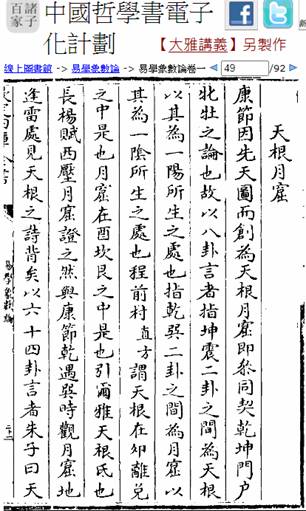 諸子百家
中國哲學書電子化計劃
【大雅講義】另製作
線上圖書館 -> 易學象數論 -> 易學象數論卷一
49
/92
天根月窟
康節因先天圖而創為天根月窟即參同契乾坤門戶
牝牡之論也故以八卦言者指坤震二卦之間為天根
以其為一陽所生之處也指乾巽二卦之間為月窟以
其為一陰所生之處也程前村直方謂天根在卯離兌
之中是也月窟在酉坎艮之中是也引爾雅天根氐也
長楊賦西壓月窟證之然與康節乾遇巽時觀月窟地
逢雷處見天根之詩背矣以六十四卦言者朱子曰天
易學象數論